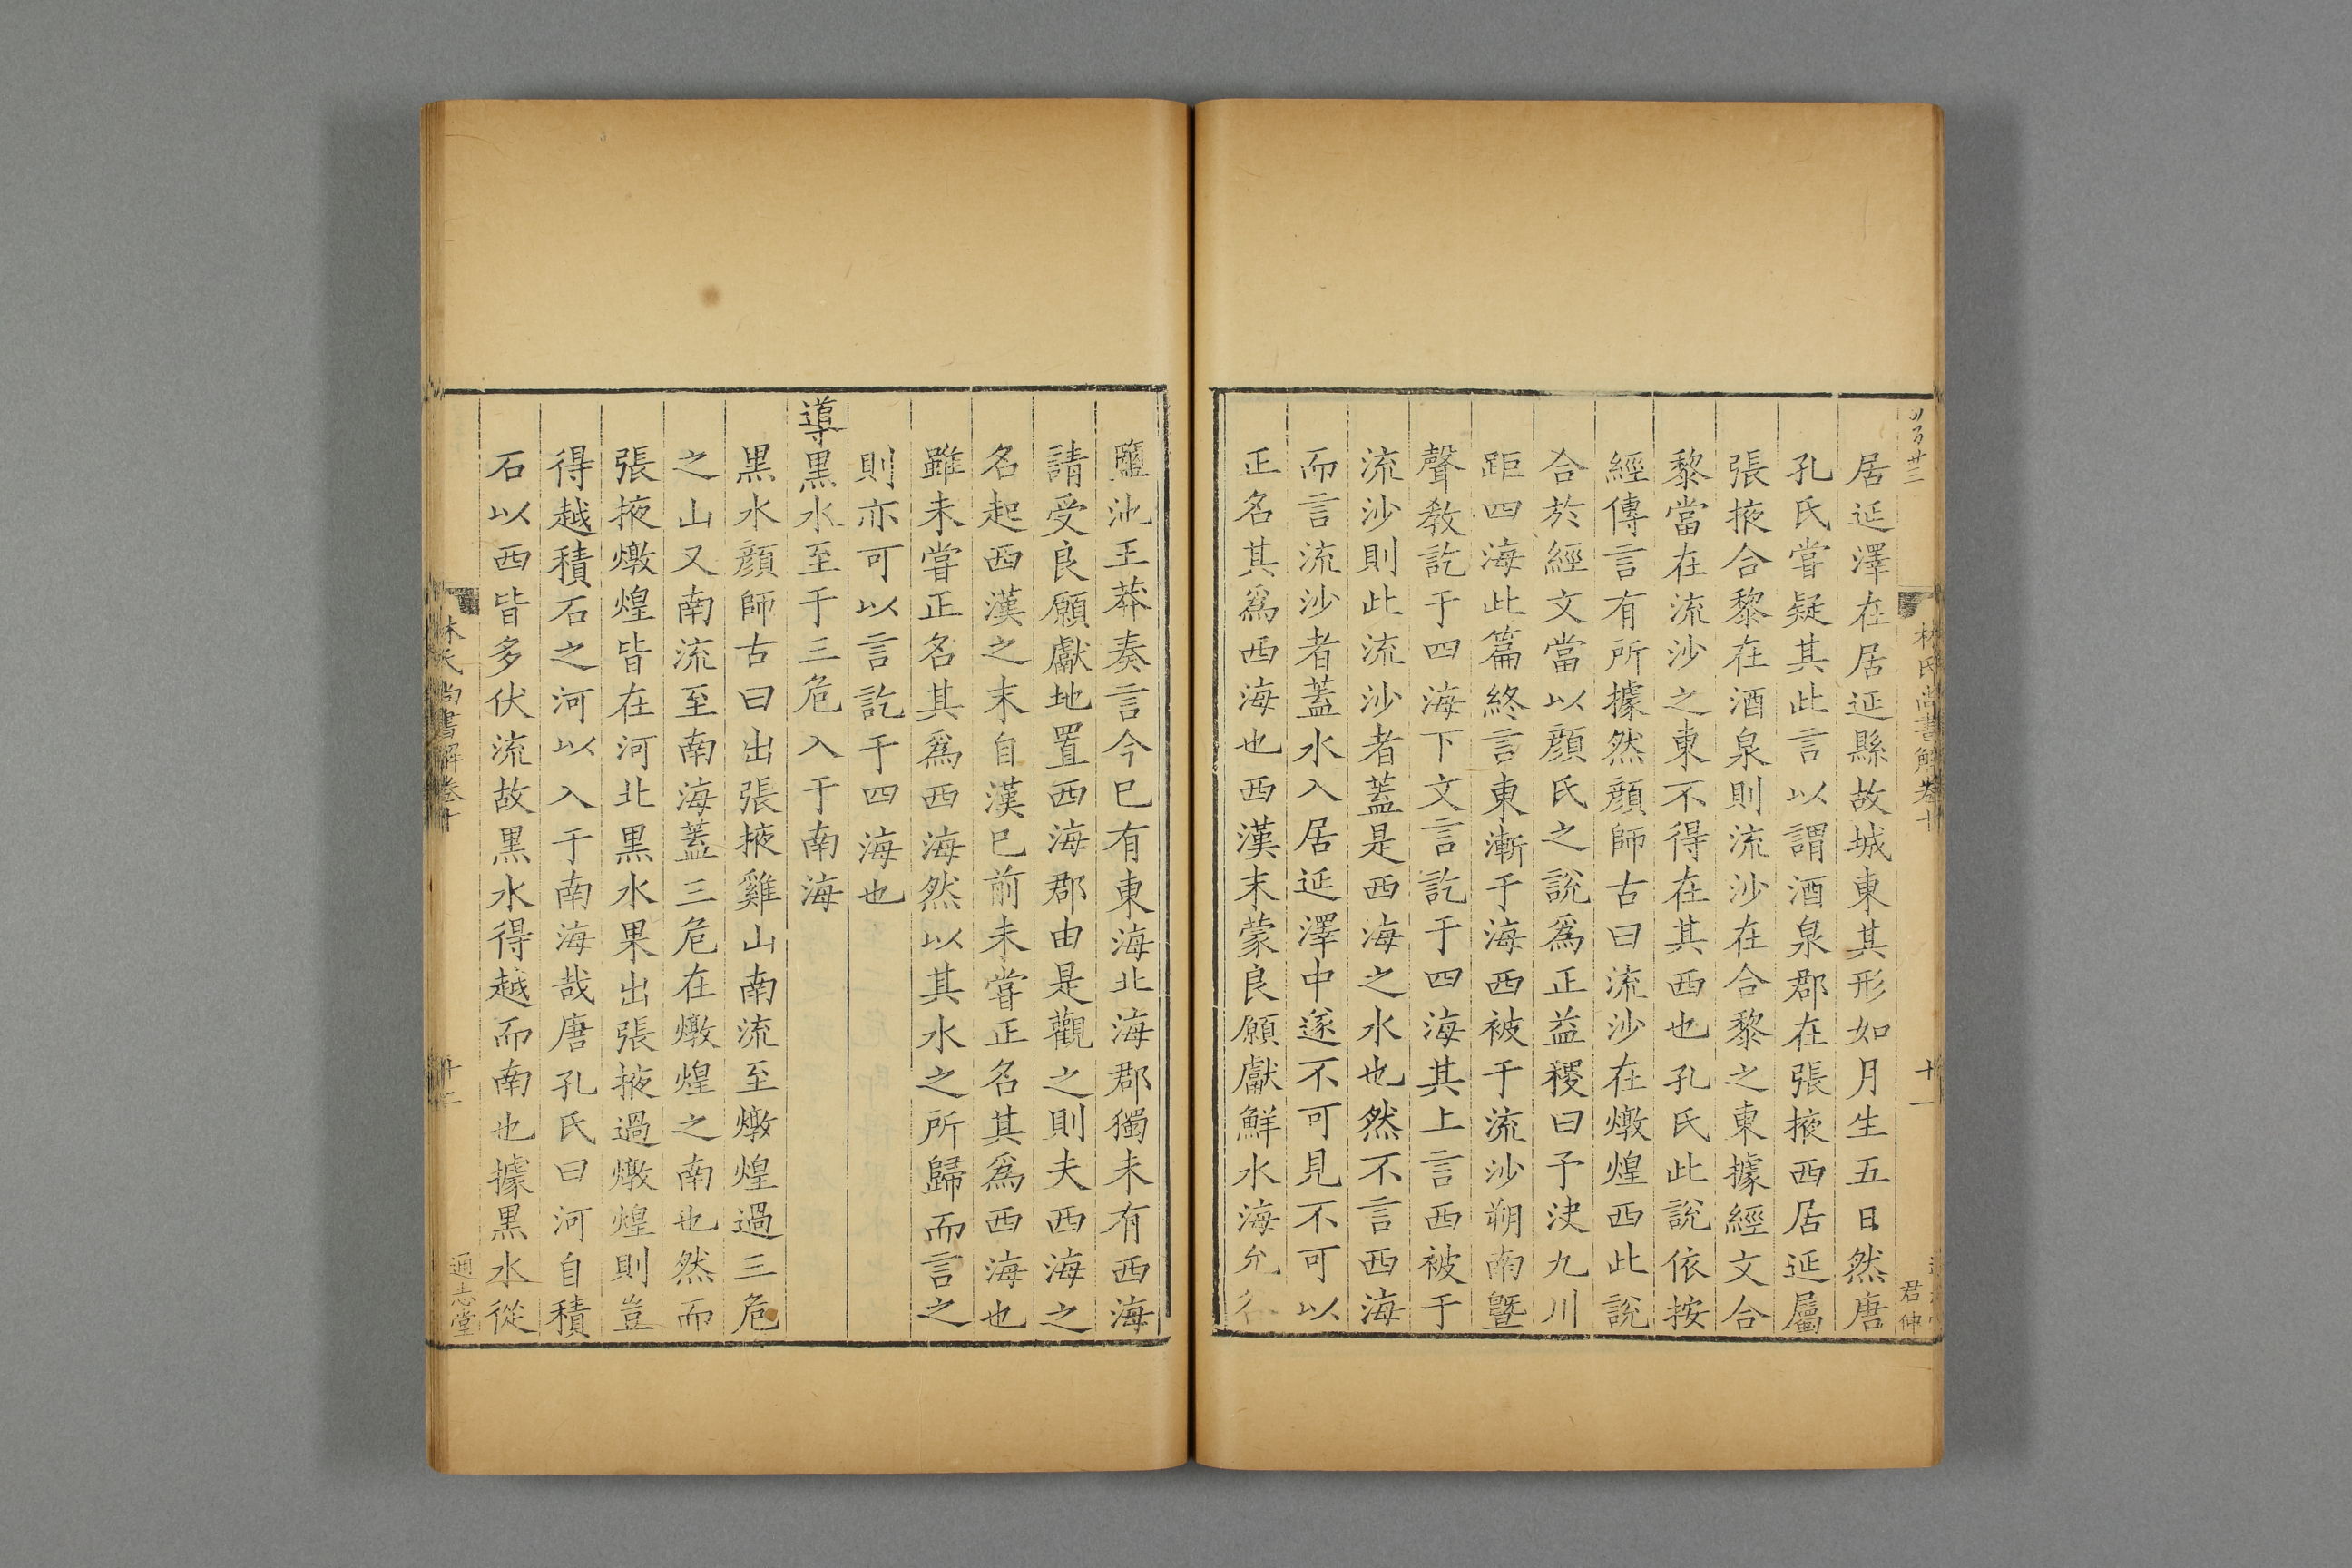 林氏尚書解卷十
十一
君仲
居延澤在居延縣故城東其形如月生五日然唐
孔氏嘗疑其此言以謂酒泉郡在張掖西居延屬
張掖合黎在酒泉則流沙在合黎之東據經文合
黎當在流沙之東不得在其西也孔氏此說依按
經傳言有所據然顔師古曰流沙在燉煌西此說
合於經文當以顔氏之說爲正益稷曰予決九川
距四海此篇終言東漸于海西被于流沙朔南曁
聲敎訖于四海下文言訖于四海其上言西被于
流沙則此流沙者蓋是西海之水也然不言西海
而言流沙者蓋水入居延澤中遂不可見不可以
正名其爲西海也西漢末蒙良願獻鮮水海允
鹽池王莽奏言今已有東海北海郡獨未有西海
請受良願獻地置西海郡由是觀之則夫西海之
名起西漢之末自漢已前未嘗正名其爲西海也
雖未嘗正名其爲西海然以其水之所歸而言之
則亦可以言訖于四海也
導黑水至于三危入于南海
黑水顔師古曰出張掖雞山南流至燉煌過三危
之山又南流至南海蓋三危在燉煌之南也然而
張掖燉煌皆在河北黑水果出張掖過燉煌則豈
得越積石之河以入于南海哉唐孔氏曰河自積
石以西皆多伏流故黑水得越而南也據黑水從
林氏尚書解卷十
十二
通志堂